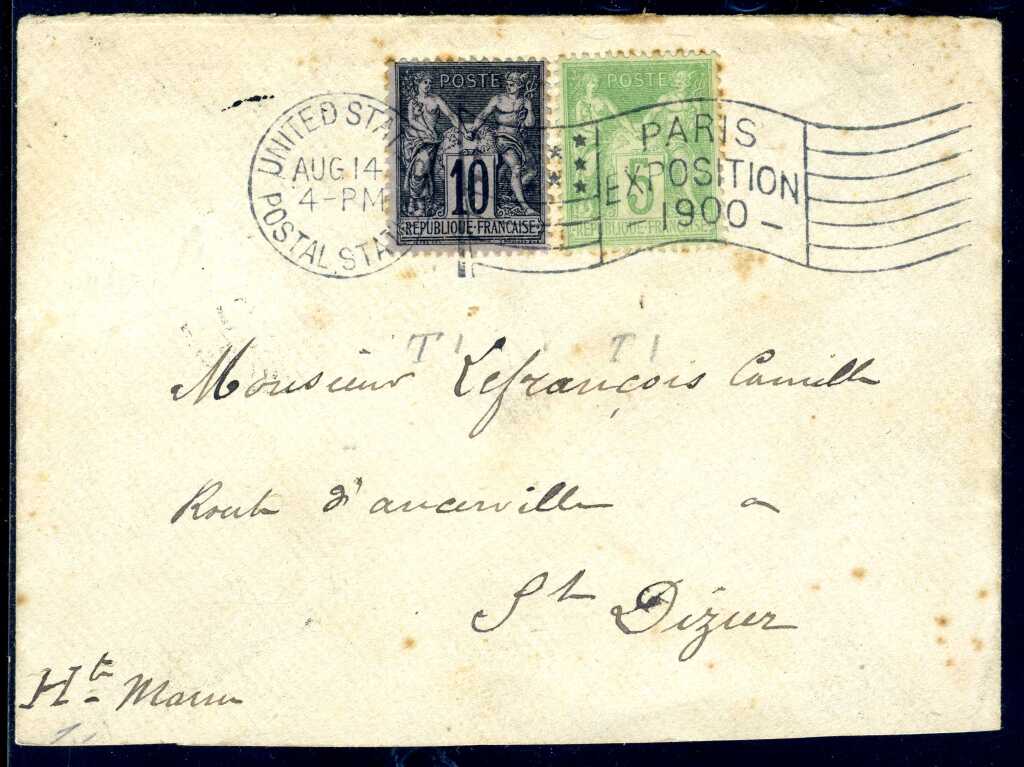 POSTE
POSTE
UNITED STA
AUG 14
4-PM
POSTAL STAT
10
5
REPUBLIQUE·FRANCAISE
REPUBLIQUE·FRANCAISE
PARIS
EXPOSITION
1900-
T1 T1
Monsieur Lefrançois Camille
Route d'ancerville a
St Dizier
Hte Marne